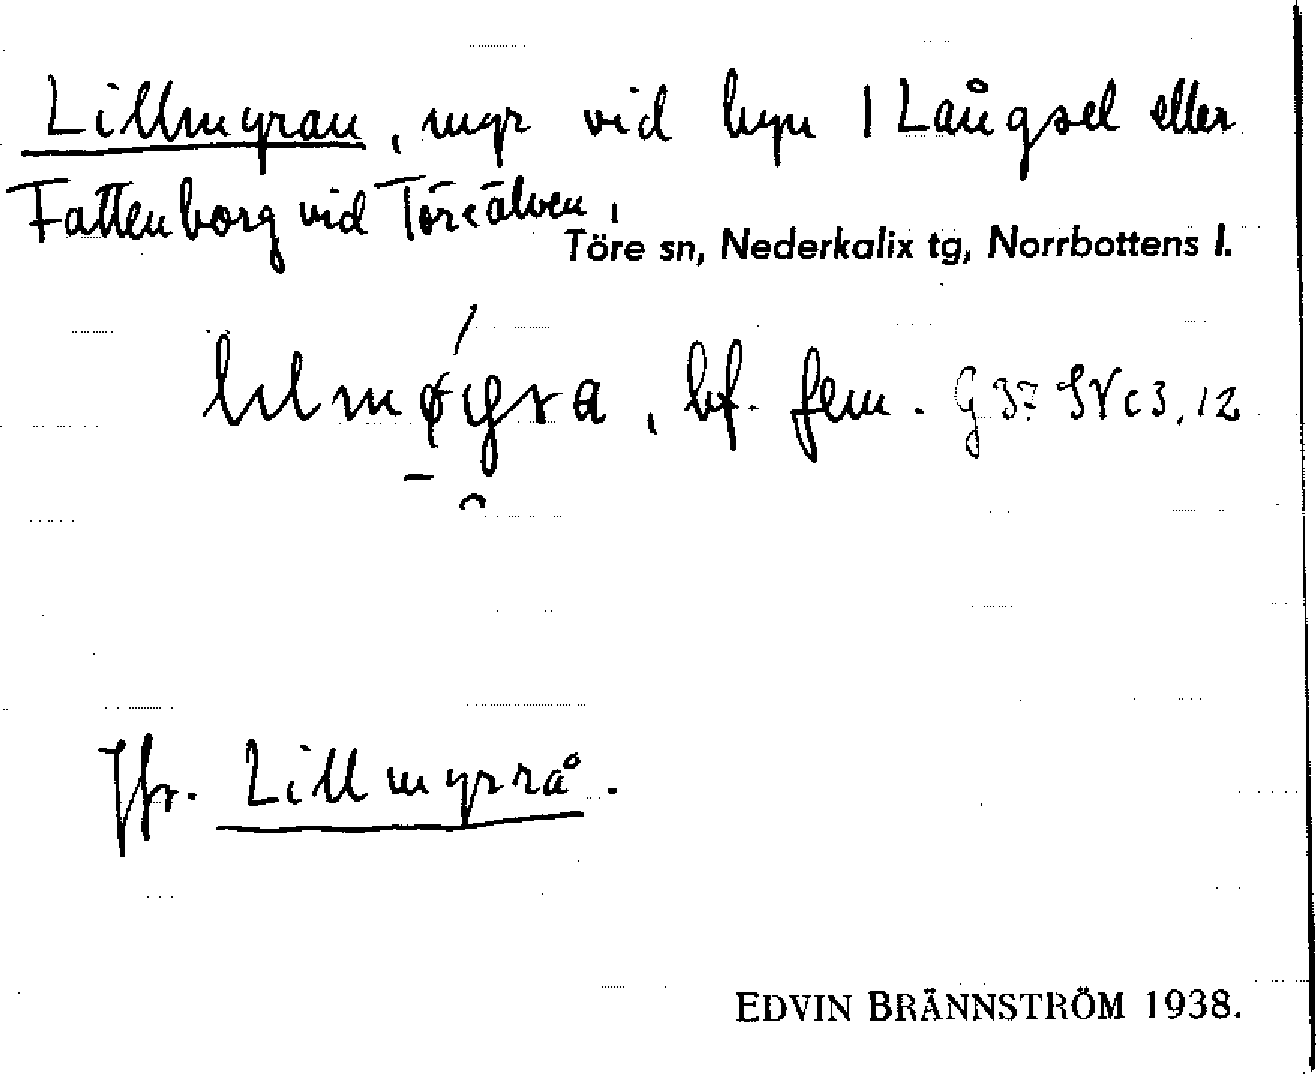 Lillmyran, myr vid byn 1 Långsel eller
Fattenborg vid Töreälven,
Töre sn, Nederkalix tg, Norrbottens l.
bf. fem.
Jfr. Lillmyrrå.
EDVIN BRÄNNSTRÖM 1938.